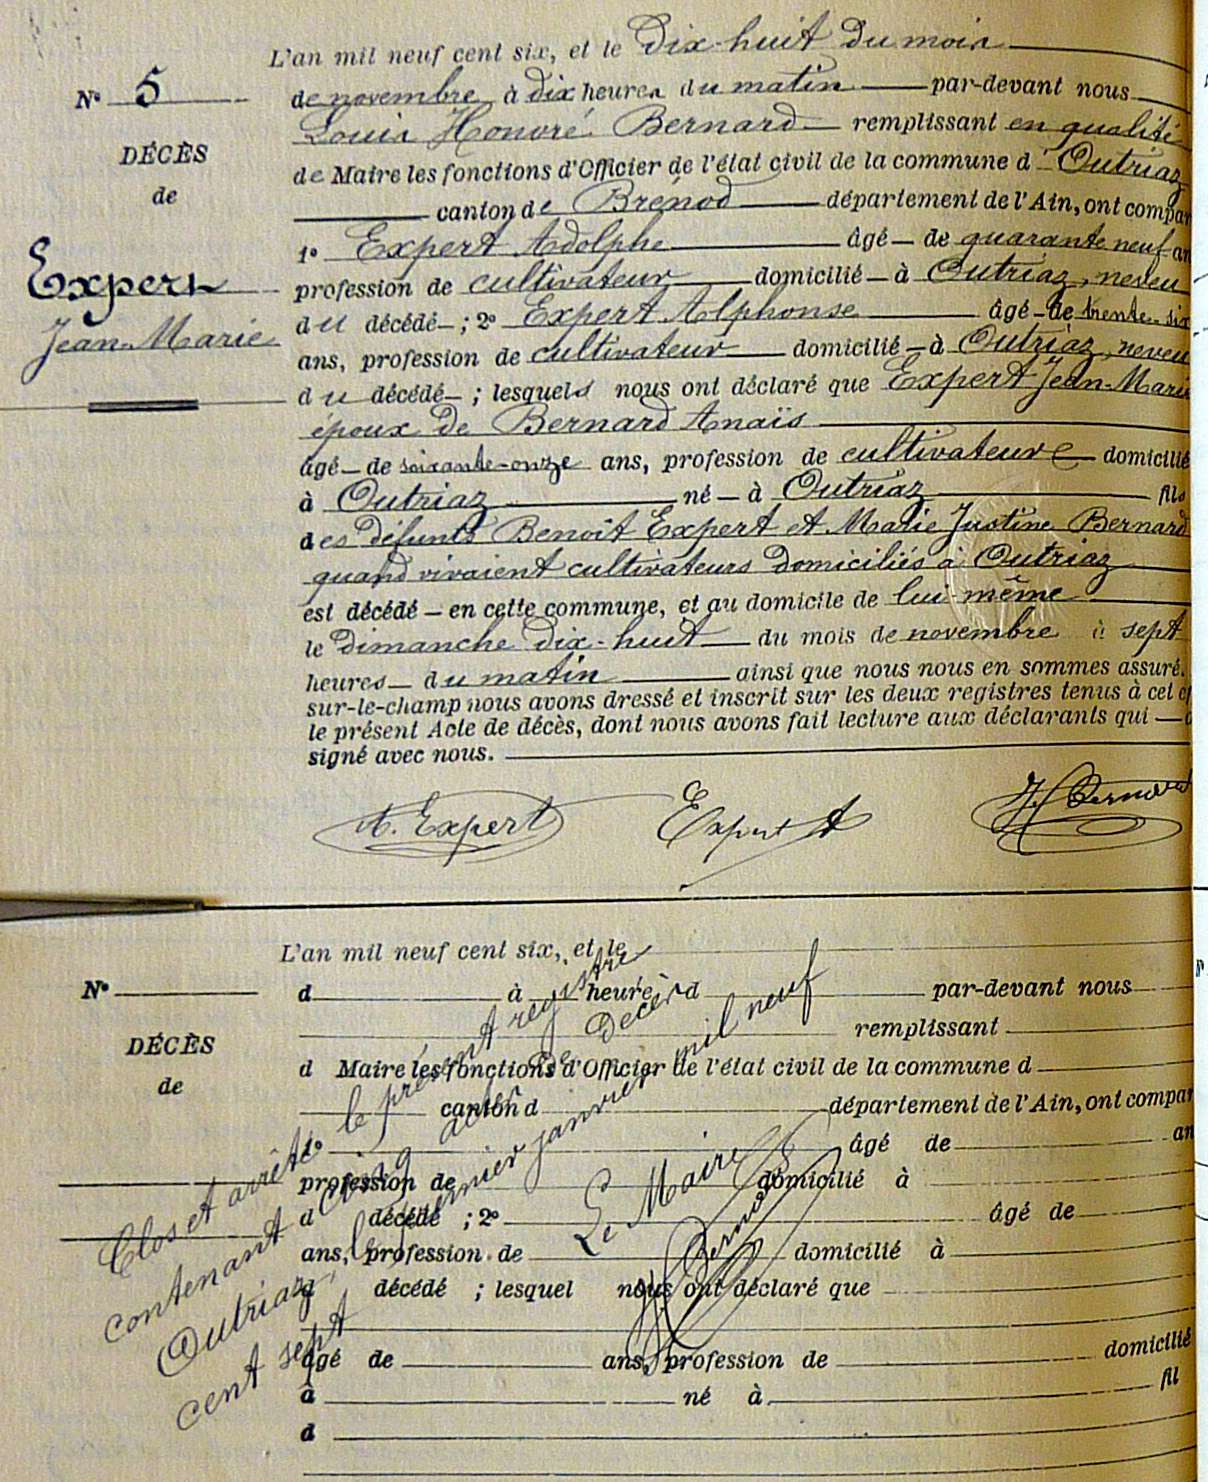 L'an mil neuf cent six, et le Dix-huit du mois
N° 5
de novembre à dix heures du matin par-devant nous
Louis Honoré Bernard remplissant en qualité
DÉCÈS
de Maire les fonctions d'Officier de l'état civil de la commune d'Outriaz
de
canton de Brénod département de l'Ain, ont compar
Expert
Jean-Marie
1° Expert Adolphe âgé de quarante neuf an
profession de cultivateur domicilié à Outriaz, neveu
du décédé ; 2° Expert Alphonse âgé de trente-six
ans, profession de cultivateur domicilié à Outriaz, neveu
du décédé ; lesquels nous ont déclaré que Expert Jean-Marie
époux de Bernard Anaïs
âgé de soixante-onze ans, profession de cultivateur domicilié
à Outriaz né à Outriaz fils
des défunts Benoît Expert et Marie Justine Bernard
quand vivaient cultivateurs domiciliés à Outriaz
est décédé en cette commune, et au domicile de lui-même
le dimanche dix-huit du mois de novembre à sept
heures du matin ainsi que nous nous en sommes assuré.
sur-le-champ nous avons dressé et inscrit sur les deux registres tenus à cet
le présent Acte de décès, dont nous avons fait lecture aux déclarants qui
signé avec nous.
A. Expert Expert A H Bernard
L'an mil neuf cent six, et le
N°
d à heure d par-devant nous
remplissant
DÉCÈS
d Maire les fonctions d'Officier de l'état civil de la commune d
de
canton d département de l'Ain, ont compar
1° âgé de an
profession de domicilié à
d décédé ; 2° âgé de
ans, profession de domicilié à
d décédé ; lesquel nous ont déclaré que
âgé de ans, profession de domicilié
à né à fil
d
Clos et arrêté le présent registre
contenant cinq actes de Décès
Outriaz, le premier janvier mil neuf
cent sept
Le Maire
H Bernard